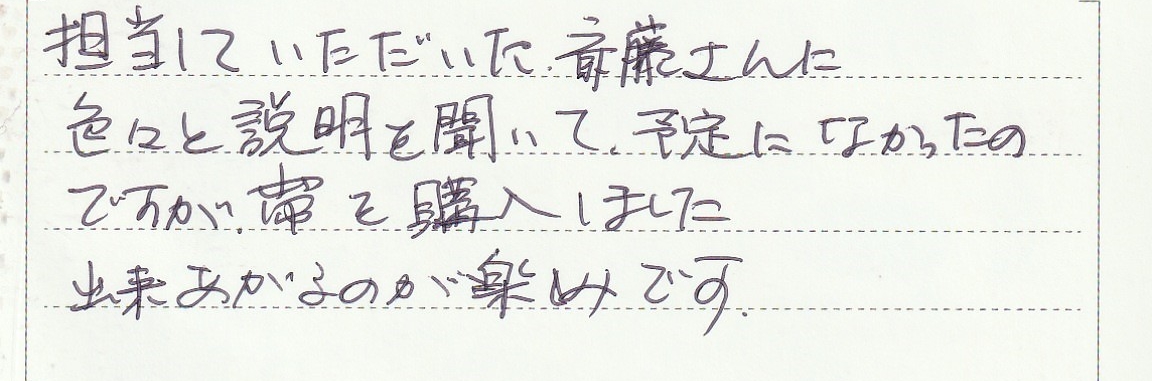 担当していただいた、斉藤さんに
色々と説明を聞いて、予定になかったの
ですが、帯を購入しました
出来あがるのが楽しみです。